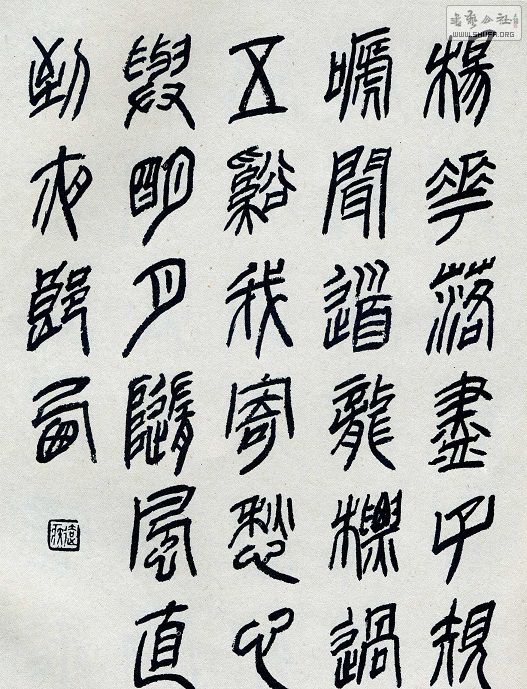 楊華落盡子規
嗁聞道龍標過
五谿我寄愁心
與明月隨風直
到夜郎西
書藝公社
WWW.SHUFA.ORG